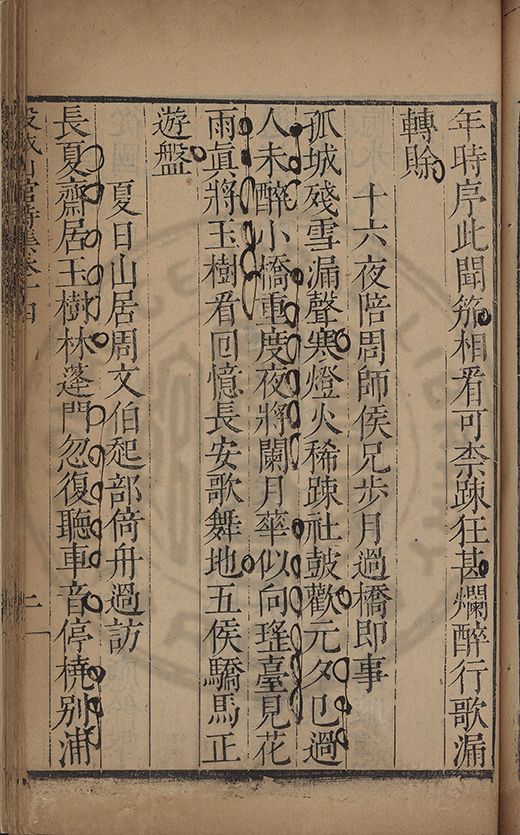 年時序此聞笳相看可柰踈狂甚爛醉行歌漏
轉賖
十六夜陪周師侯兄步月過橋即事
孤城殘雪漏聲寒燈火稀踈社鼓歡元夕已過
人未醉小橋重度夜將闌月華似向瑤臺見花
雨眞將玉樹看回憶長安歌舞地五侯驕馬正
遊盤
夏日山居周文伯起部倚舟過訪
長夏齋居玉樹林蓬門忽復聽車音停橈别浦